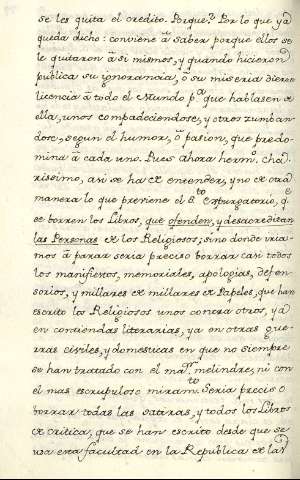 se les quita el credito. Porque? Por lo que ya
queda dicho: conviene â saber porque ellos se
le quitaron â si mismos, y quando hicieron
publica su ignorancia, ô su miseria dieron
licencia â todo el Mundo p.ª que hablasen de
ella, unos compadeciendose, y otros zumban
dose, segun el humor, ô pasion, que predo-
mina â cada uno. Pues ahora herm.º Cha-
rissimo, asi se ha de entender, y no de otra
manera lo que previene el S.to Expurgatorio, q.e
se borren los Libros, que ofenden, y desacreditan
las Personas de los Religiosos; sino donde iria-
mos â parar seria preciso borrar casi todos
los manifiestos, memoriales, apologias, defen-
sorios, y millares de millares de Papeles, que han
escrito los Religiosos unos contra otros, yâ
en contiendas literarias, yâ en otras gue-
rras civiles, y domesticas en que no siempre
se han tratado con el ma.r melindre, ni con
el mas escrupuloso miram.to Seria preciso
borrar todas las satiras, y todos los Libros
de critica, que se han escrito desde que se
usa esta facultad en la Republica de las